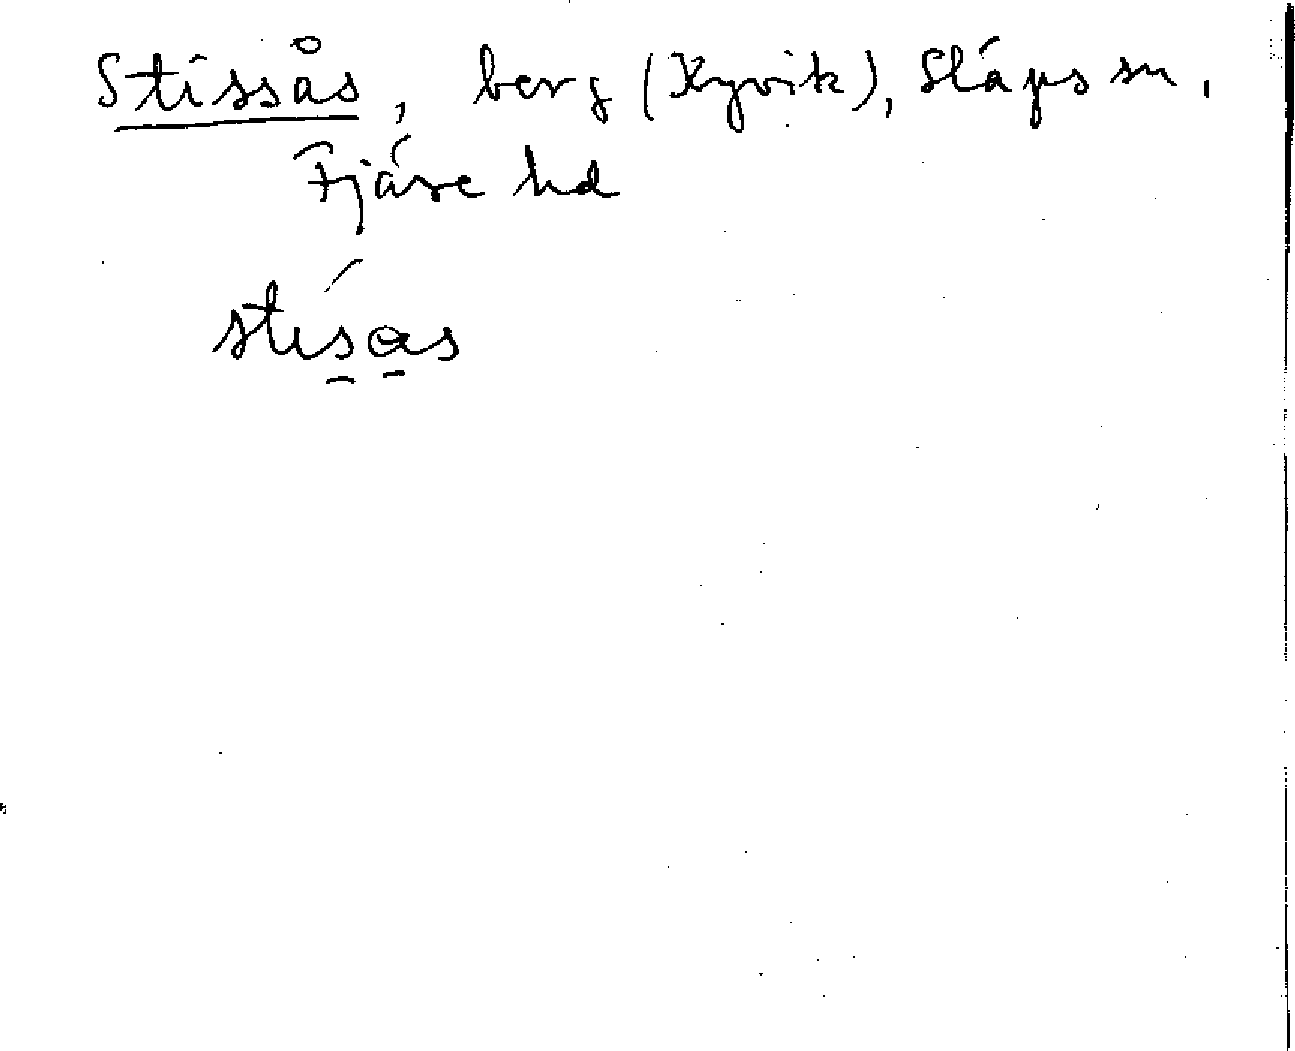 Stissås, berg (Kyvik), Släps sn,
Fjäre hd
stísas